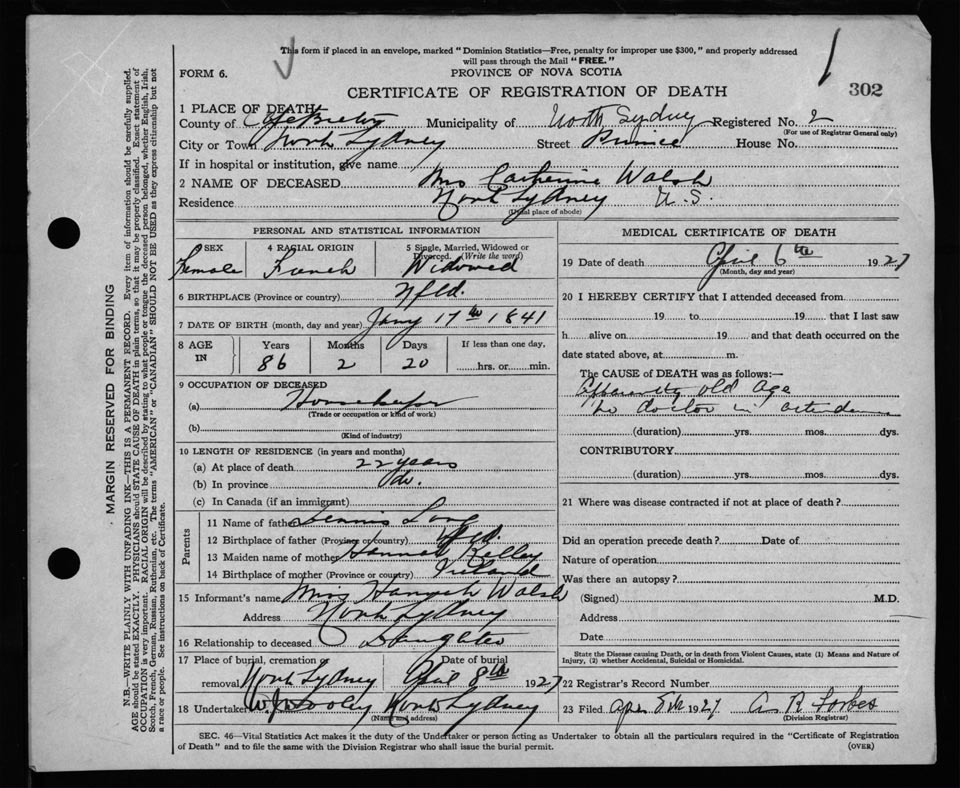 This form if placed in an envelope, marked "Dominion Statistics—Free, penalty for improper use $300," and properly addressed
will pass through the Mail "FREE."
FORM 6.
PROVINCE OF NOVA SCOTIA
302
CERTIFICATE OF REGISTRATION OF DEATH
1 PLACE OF DEATH
County of Cape Breton Municipality of North Sydney Registered No. 2
(For use of Registrar General only)
City or Town North Sydney Street Prince House No.
If in hospital or institution, give name
2 NAME OF DECEASED Mrs Catherine Walsh
Residence North Sydney N.S.
(Usual place of abode)
PERSONAL AND STATISTICAL INFORMATION
3 SEX 4 RACIAL ORIGIN 5 Single, Married, Widowed or Divorced. (Write the word)
Female French Widowed
6 BIRTHPLACE (Province or country) Nfld.
7 DATE OF BIRTH (month, day and year) Jany 17th 1841
8 AGE IN Years Months Days If less than one day,
86 2 20 hrs. or min.
9 OCCUPATION OF DECEASED
(a) Housekeeper
(Trade or occupation or kind of work)
(b)
(Kind of industry)
10 LENGTH OF RESIDENCE (in years and months)
(a) At place of death 22 years
(b) In province do.
(c) In Canada (if an immigrant)
Parents
11 Name of father Dennis Long
12 Birthplace of father (Province or country) Nfld.
13 Maiden name of mother Hannah Kelley
14 Birthplace of mother (Province or country) Ireland
15 Informant's name Miss Hannah Walsh
Address North Sydney
16 Relationship to deceased Daughter
17 Place of burial, cremation or removal North Sydney Date of burial April 8th 1927
18 Undertaker W. J. Dooley North Sydney
(Name and address)
MEDICAL CERTIFICATE OF DEATH
19 Date of death April 6th 1927
(Month, day and year)
20 I HEREBY CERTIFY that I attended deceased from
19 to 19 that I last saw
h alive on 19 and that death occurred on the
date stated above, at m.
The CAUSE of DEATH was as follows:—
old age
no doctor in attendance
(duration) yrs. mos. dys.
CONTRIBUTORY
(duration) yrs. mos. dys.
21 Where was disease contracted if not at place of death?
Did an operation precede death? Date of
Nature of operation
Was there an autopsy?
(Signed) M.D.
Address
Date
State the Disease causing Death, or in death from Violent Causes, state (1) Means and Nature of
Injury, (2) whether Accidental, Suicidal or Homicidal.
22 Registrar's Record Number
23 Filed Apr 8th 1927 A R Forbes
(Division Registrar)
SEC. 46—Vital Statistics Act makes it the duty of the Undertaker or person acting as Undertaker to obtain all the particulars required in the "Certificate of Registration
of Death" and to file the same with the Division Registrar who shall issue the burial permit.
(OVER)
MARGIN RESERVED FOR BINDING
N.B.—WRITE PLAINLY WITH UNFADING INK—THIS IS A PERMANENT RECORD. Every item of information should be carefully supplied.
AGE should be stated EXACTLY. PHYSICIANS should STATE CAUSE OF DEATH in plain terms, so that it may be properly classified. Exact statement of
OCCUPATION is very important. RACIAL ORIGIN will be described by stating to what people or tongue the deceased person belonged, whether English, Irish,
Scotch, French, German, Russian, Ruthenian, etc. The terms "AMERICAN" or "CANADIAN" SHOULD NOT BE USED as they express citizenship but not
a race or people. See instructions on back of Certificate.